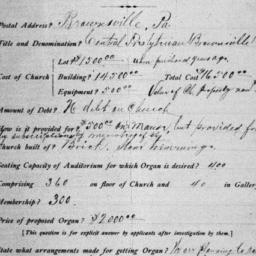 Postal Address? Brownsville, Pa.
Title and Denomination? Central Presbyterian Brownsville
Lot? $1500.00 when purchased years ago.
Cost of Church Building? 14500.00 Total Cost $16500.00
Equipment? 500.00 Value of Ch. property now
Amount of Debt? No debt on Church
How is it provided for? $500.00 on Manse, but provided for
by subscription
Church built of? Brick. Stone trimmings.
Seating Capacity of Auditorium for which Organ is desired? 400
Comprising 360 on floor of Church and 40 in Gallery
Membership? 300.
Price of proposed Organ? $2000.00
[This question is for explicit answer by applicants after investigation by them.]
State what arrangements made for getting Organ?